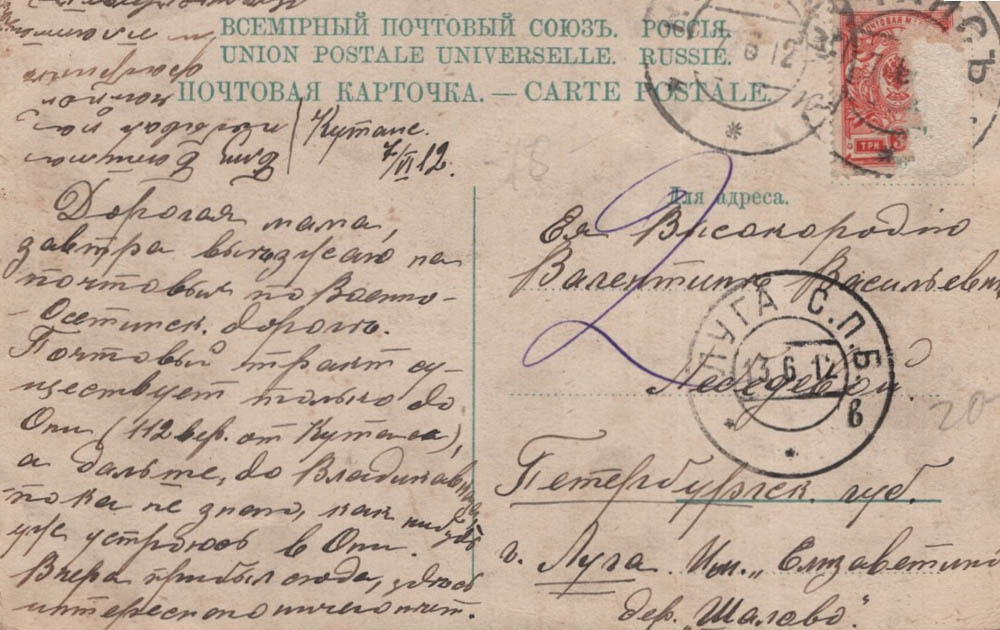 ВСЕМІРНЫЙ ПОЧТОВЫЙ СОЮЗЪ. РОССІЯ.
UNION POSTALE UNIVERSELLE. RUSSIE.
ПОЧТОВАЯ КАРТОЧКА. — CARTE POSTALE.
Кутаис.
7/VI 12.
Дорогая мама,
завтра выезжаю на
почтовых по Военно-
Осетинск. дорогѣ.
Почтовый тракт су-
ществует только до
Они (112 вер. от Кутаиса),
а дальше, до Владикавказа
пока не знаю, как нибудь
уже устроюсь в Они.
Вчера прибыл сюда, здѣсь
интересного ничего нѣт.
Для адреса.
Ея Высокородію
Валентинѣ Васильевнѣ
Лебедевой
Петербургск. губ.
г. Луга. Им. „Елизаветино
дер. „Шалово".
ЛУГА С.П.Б.
13.6.12
в
2
20
6 12
ТРИ